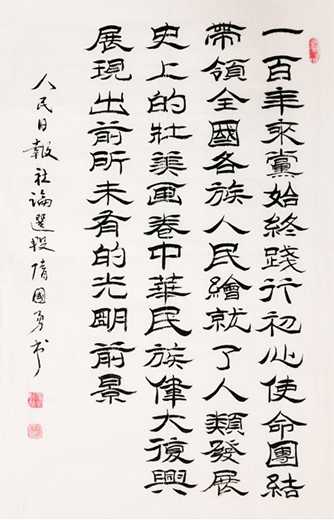 一百年来黨始終踐行初心使命團結
帶領全國各族人民繪就了人類發展
史上的壯美画卷中華民族偉大復興
展現出前所未有的光明前景
人民日報社論選段隋國勇书